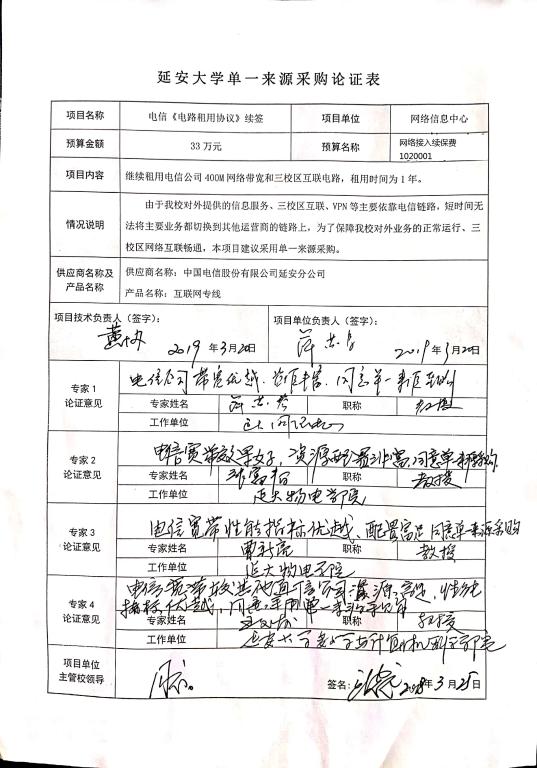 延安大学单一来源采购论证表
项目名称 电信《电路租用协议》续签 项目单位 网络信息中心
预算金额 33 万元 预算名称 网络接入续保费
1020001
项目内容 继续租用电信公司 400M 网络带宽和三校区互联电路，租用时间为 1 年。
由于我校对外提供的信息服务、三校区互联、VPN 等主要依靠电信链路，短时间无
情况说明 法将主要业务都切换到其他运营商的链路上，为了保障我校对外业务的正常运行、三
校区网络互联畅通，本项目建议采用单一来源采购。
供应商名称及 供应商名称：中国电信股份有限公司延安分公司
产品名称 产品名称：互联网专线
项目技术负责人（签字）： 项目单位负责人（签字）：
2019 年 3 月 20 日 2019 年 3 月 20 日
电信公司带宽优越
专家 1
论证意见 专家姓名 职称
工作单位
电信宽带效果好，资源配置 同意单一来源采购
专家 2
论证意见 专家姓名 职称 教授
工作单位 延大物电学院
电信宽带性能指标优越，配置 同意单一来源采购
专家 3
论证意见 专家姓名 职称 教授
工作单位 延大物电学院
电信
指标优越，同意
专家 4
论证意见 专家姓名 职称 教授
工作单位 延安大学数学与计算机科学学院
项目单位
主管校领导 签名： 3 月 25 日